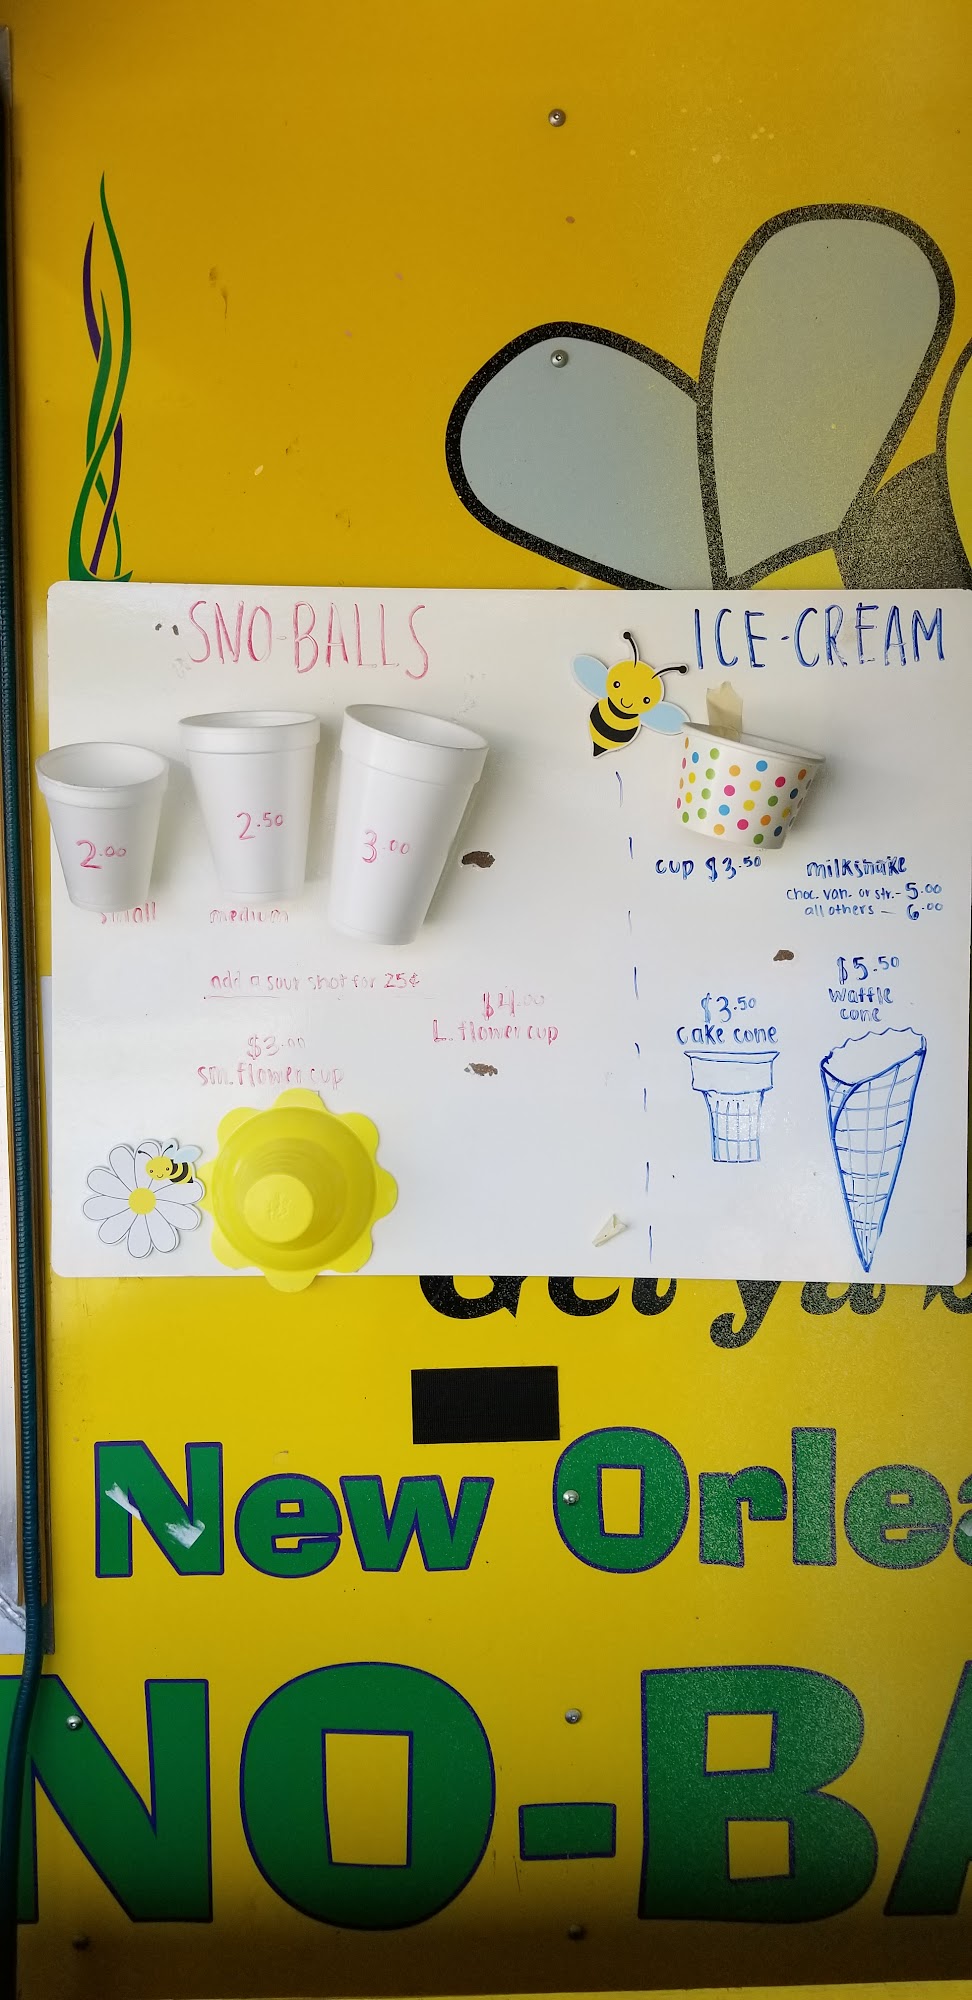 SNO-BALLS
2.00
2.50
3.00
small
medium
add a sour shot for 25¢
$3.00
sm. flower cup
$4.00
L. flower cup
ICE-CREAM
cup $3.50
milkshake
choc. van. or str.- 5.00
all others - 6.00
$3.50
cake cone
$5.50
waffle
cone
Get ya
New Orlea
NO-BA